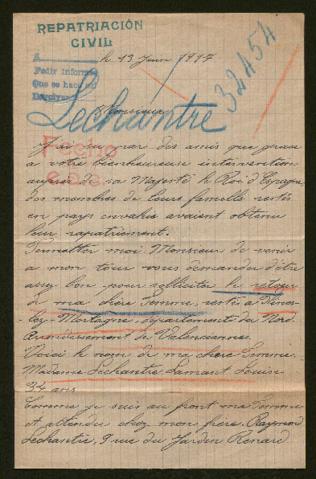 REPATRIACIÓN
CIVIL
le 13 Juin 1917
Pedir informe
Que se haga
32454
Monsieur
Lechantre
J'ai su par des amis que grace
a votre bienheureuse intervention
aupres de sa Majesté le Roi d'Espagne
des membres de leurs famille restés
en pays envahis avaient obtenu
leur rapatriement.
Permettez moi Monsieur de venir
a mon tour vous demander d'être
assez bon pour solliciter le retour
de ma chère femme restée a
Mortagne, departement du Nord
Arrondissement de Valenciennes.
Voici le nom de ma chère femme.
Madame Lechantre Louise
34 ans
Comme je suis au front ma femme
est attendue chez mon frère, Raymond
Lechantre, 9 rue du Jardin Renard